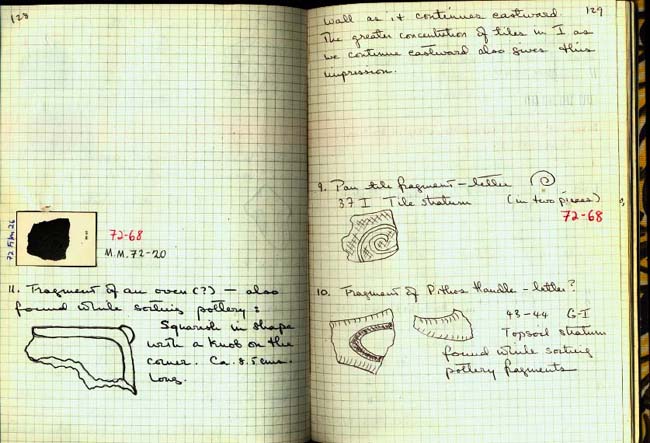 128
72-68
M.M. 72-20
11. Fragment of an oven (?) — also
found while sorting pottery:
Squarish in shape
with a knob on the
corner. Ca. 8.5 cms.
long.
129
wall as it continues eastward.
The greater concentration of tiles in I as
we continue eastward also gives this
impression.
9. Pan tile fragment - letter
37 I Tile stratum (in two pieces)
72-68
10. Fragment of Pithos Handle - letter?
43-44 G-I
Topsoil stratum
found while sorting
pottery fragments